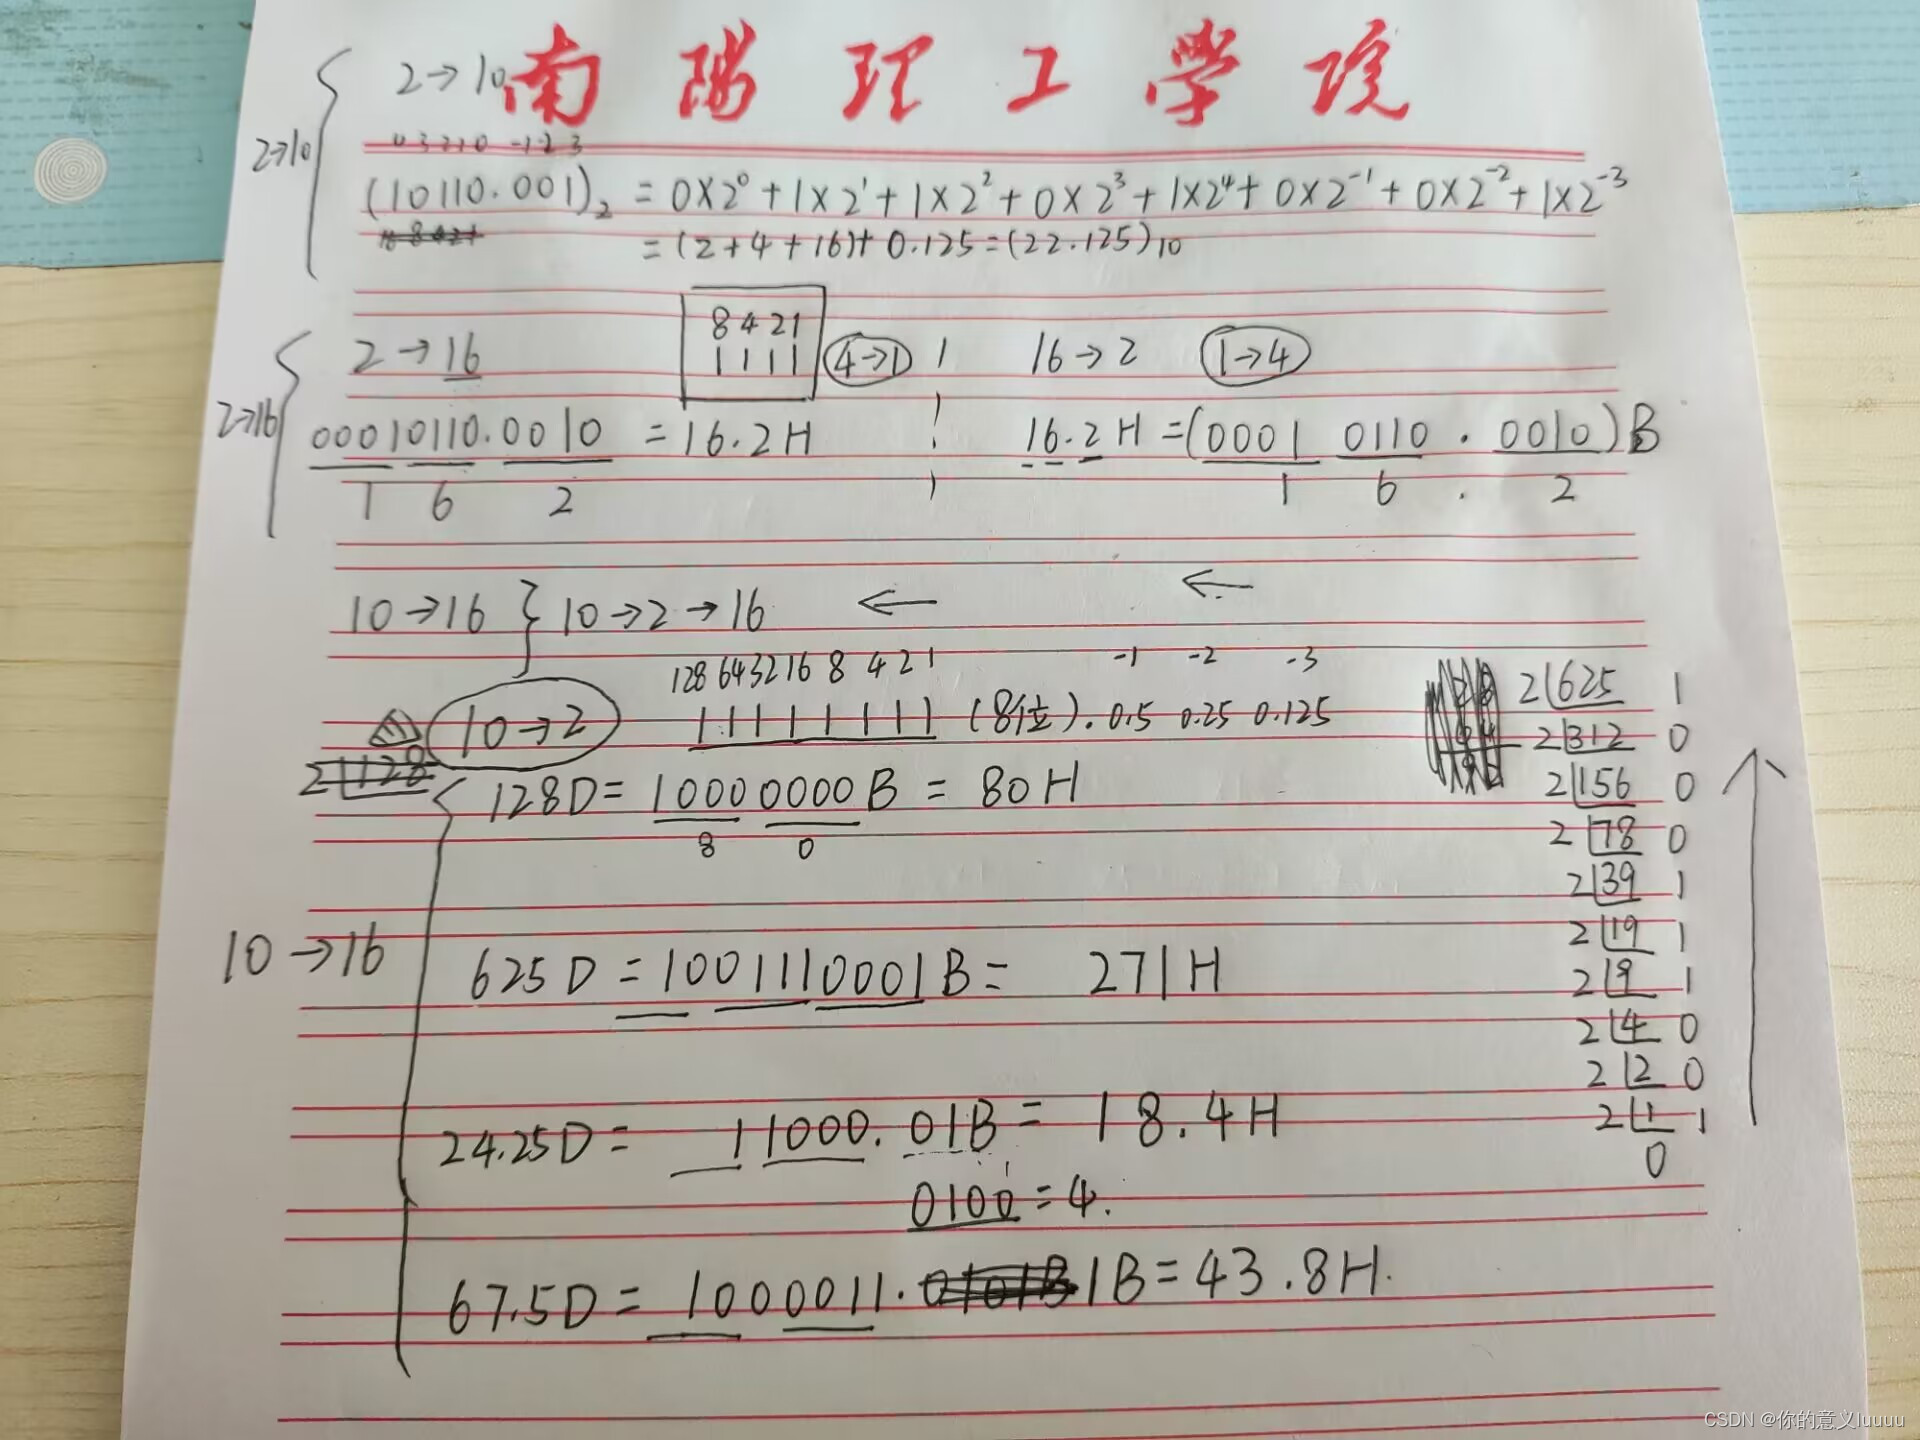 2→10
南陽理工學院
2→10
3 2 1 0 -1 -2 3
(10110.001)₂ = 0×2⁰+1×2¹+1×2²+0×2³+1×2⁴+0×2⁻¹+0×2⁻²+1×2⁻³
= (2+4+16)+0.125=(22.125)10
8421
2→16
1111
4→1
16→2
1→4
2→16
00010110.0010 = 16.2H
16.2H=(0001 0110.0010)B
1 6 2
1 6 . 2
←
←
10→16 } 10→2→16
128 64 32 16 8 4 2 1 -1 -2 -3
10→2 11111111 (8位). 0.5 0.25 0.125
2 128
128D= 10000000B = 80H
8 0
10→16
625D = 1001110001B= 271H
24.25D= 11000.01B= 18.4H
0100=4.
67.5D= 1000011.1B=43.8H.
2 625 1
2 312 0
2 156 0
2 78 0
2 39 1
2 19 1
2 9 1
2 4 0
2 2 0
2 1 1
0
CSDN @你的意义luuuu